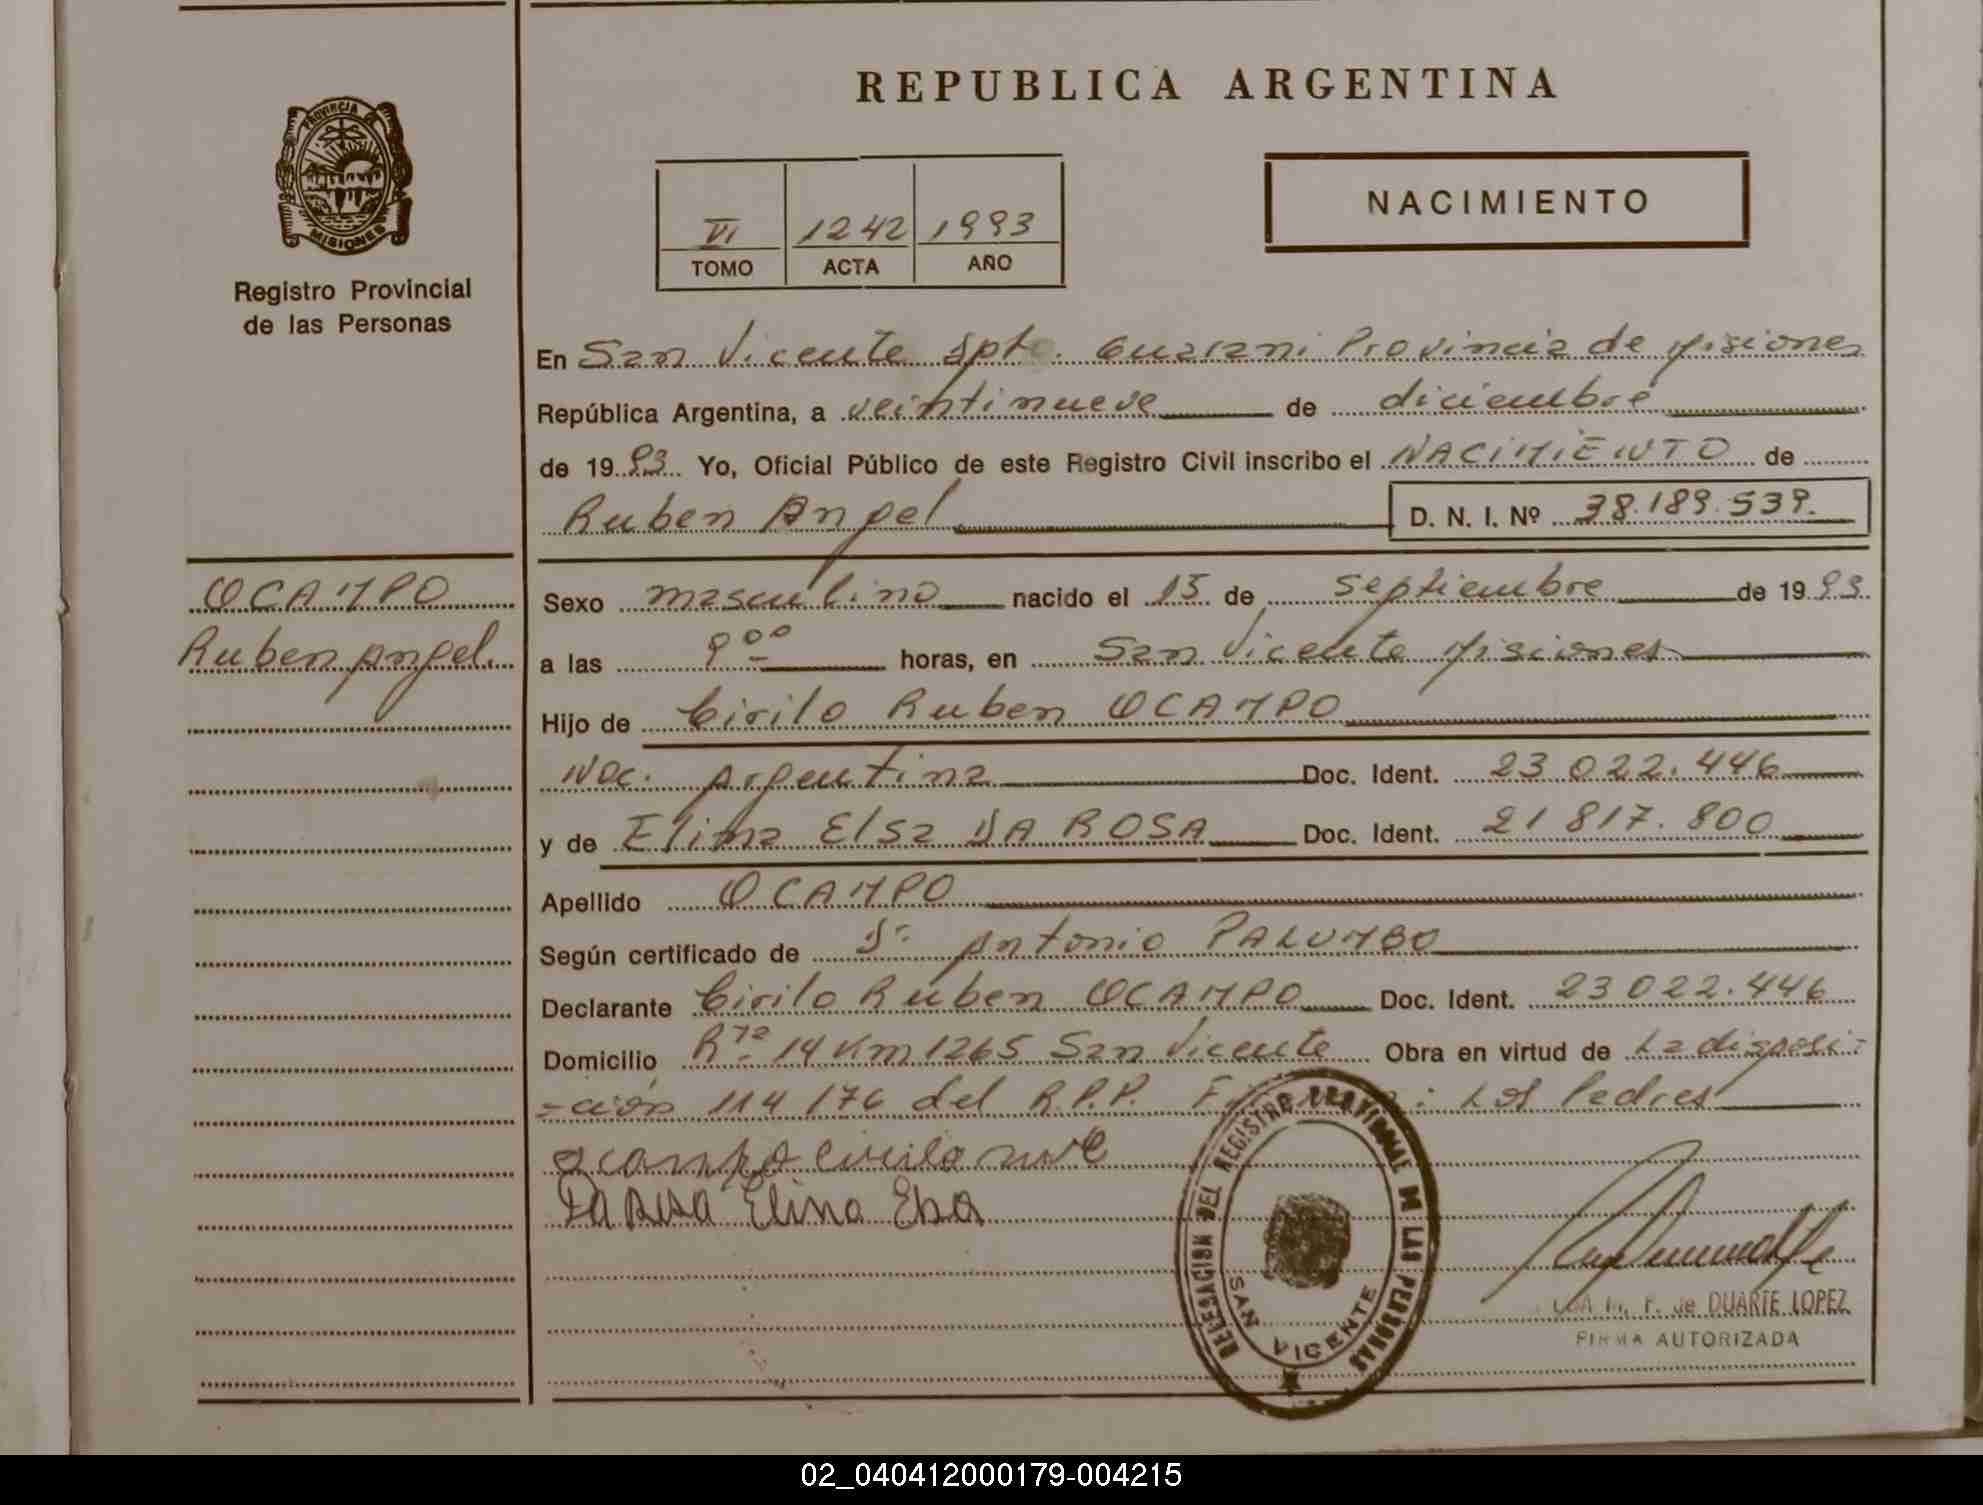 REPUBLICA ARGENTINA
PROVINCIA DE
MISIONES
Registro Provincial
de las Personas
VI 1242 1993
TOMO ACTA AÑO
NACIMIENTO
En San Vicente Dpto. Guarani Provincia de Misiones
República Argentina, a veintinueve de diciembre
de 1993 Yo, Oficial Público de este Registro Civil inscribo el NACIMIENTO de
Ruben Angel D. N. I. Nº 38.189.539.
OCAMPO
Ruben Angel.
Sexo masculino nacido el 15 de septiembre de 1993.
a las 9 00 horas, en San Vicente Misiones
Hijo de Cirilo Ruben OCAMPO
Nac. Argentina Doc. Ident. 23 022.446
y de Elina Elsa DA ROSA Doc. Ident. 21 817.800
Apellido OCAMPO
Según certificado de Dr. Antonio PALUMBO
Declarante Cirilo Ruben OCAMPO Doc. Ident. 23 022.446
Domicilio Rta 14 Km 1265 San Vicente Obra en virtud de La disposi-
-ción 114/76 del R.P.P. : Los Padres
ocampo cirilo
Elina
DELEGACION DEL REGISTRO PROVINCIAL DE LAS PERSONAS
SAN VICENTE
de DUARTE LOPEZ
FIRMA AUTORIZADA
02_040412000179-004215